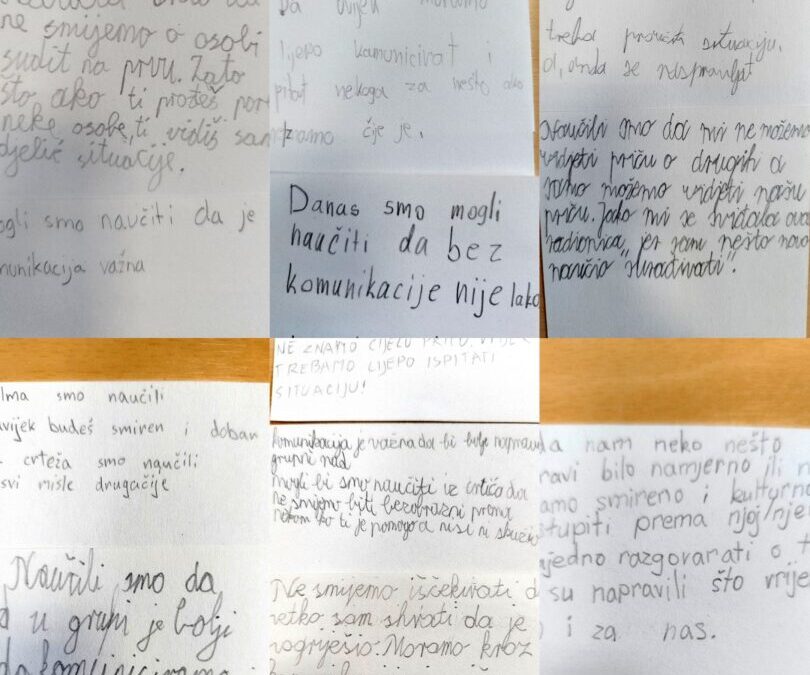 ne smijemo o osobi
sudit na prvu. Zato
što ako ti prođeš pored
neke osobe, ti vidiš sam
djelić situacije.
ogli smo naučiti da je
munikacija važna
Da uvijek moramo
lijepo komunicirat i
pitat nekoga za nešto ako
znamo čije je.
Danas smo mogli
naučiti da bez
komunikacije nije lako
treba proučit situaciju.
a, onda se raspravljat
smo da mi ne možemo
vidjeti priču o drugih a
samo možemo vidjeti našu
priču. Jako mi se sviđala ova
radionica jer sam nešto novo
naučio
ilma smo naučili
vijek budeš smiren i dobar
crteža smo naučili
svi misle drugačije
Naučili smo da
u grupi je bolji
da komuniciramo i
NE ZNAMO CIJELU PRIČU. UVIJEK
TREBAMO LIJEPO ISPITATI
SITUACIJU!
komunikacija je važna da bi bolje napravili
grupni rad
mogli bi smo naučiti iz crtića da
ne smijemo biti bezobrazni prema
nekom ko ti je pomogo a nisi ni skužio
Ne smijemo iščekivati d
netko sam shvati da je
pogriješio. Moramo kroz
a nam neko nešto
ravi bilo namjerno ili n
amo smireno i kulturno
stupiti prema njoj/njem
jedno razgovarati o t
su napravili što vrije
i za nas.